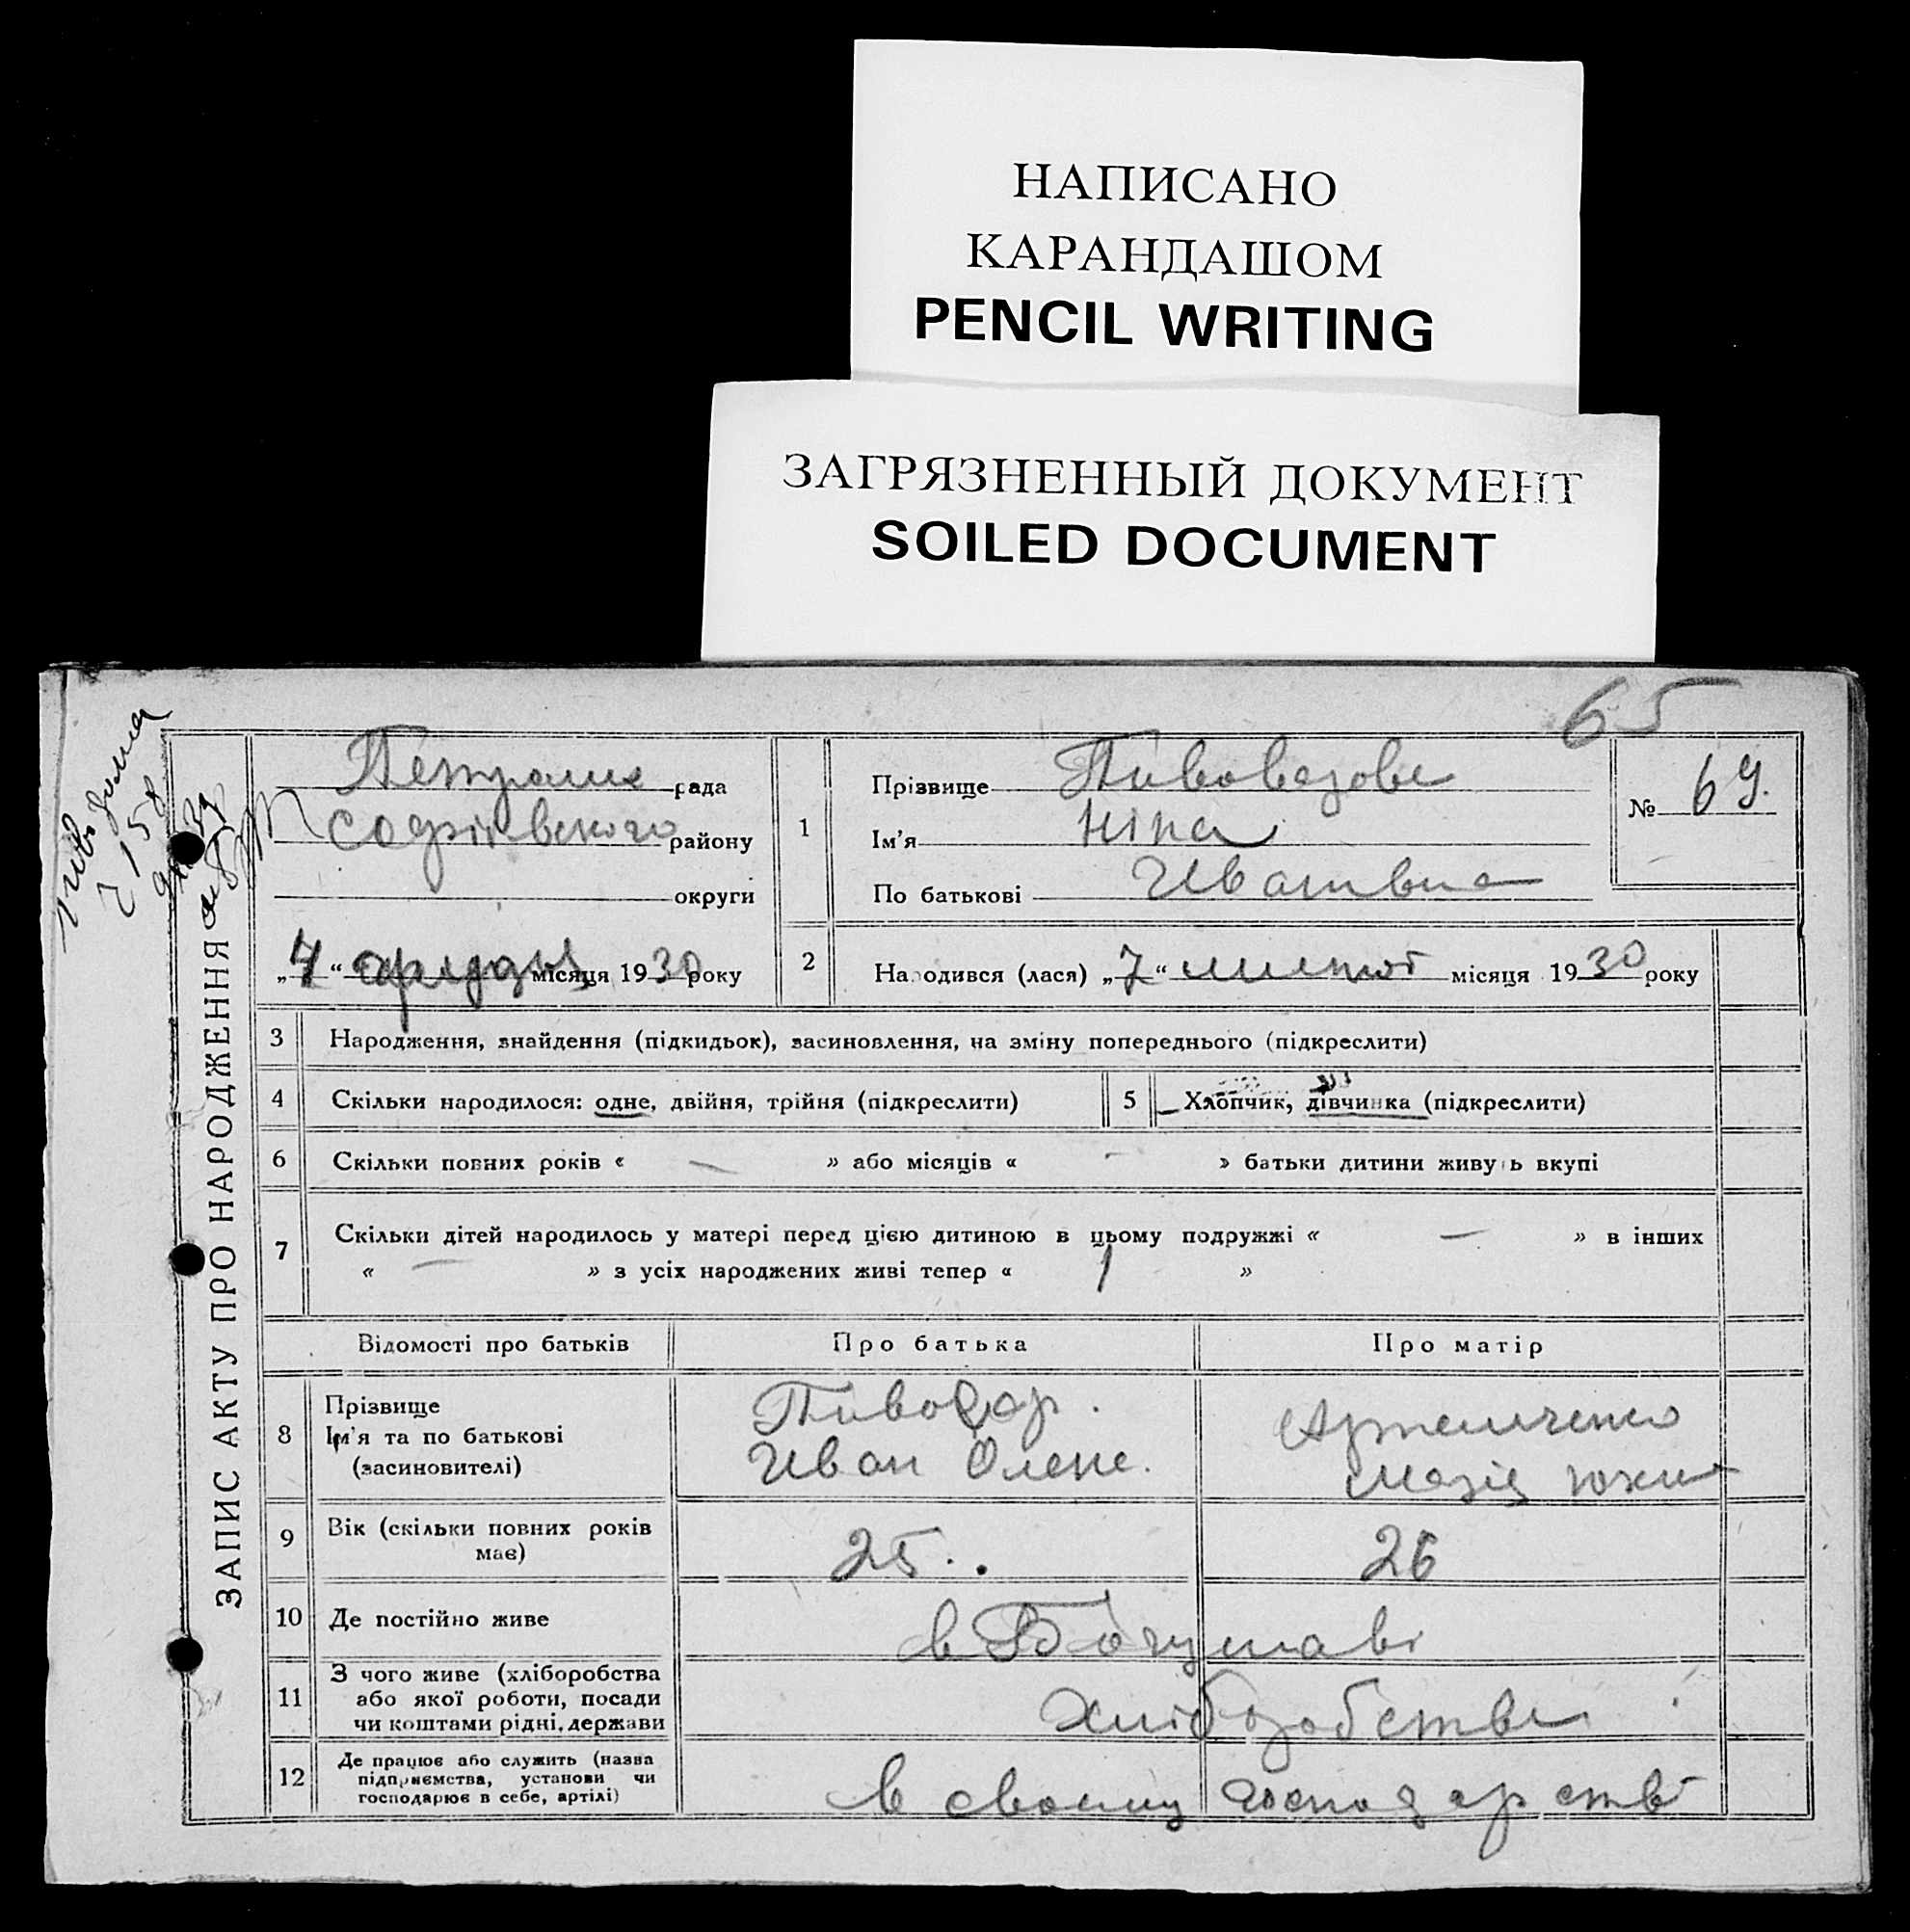 НАПИСАНО
КАРАНДАШОМ
PENCIL WRITING
ЗАГРЯЗНЕННЫЙ ДОКУМЕНТ
SOILED DOCUMENT
65
ЗАПИС АКТУ ПРО НАРОДЖЕННЯ
рада
Софіївського району
округи
„7“ місяця 1930 року
1
Прізвище
Ім'я Ніна
По батькові
№ 69.
2 Народився (лася) „7“ місяця 1930 року
3 Народження, знайдення (підкидьок), засиновлення, на зміну попереднього (підкреслити)
4 Скільки народилося: одне, двійня, трійня (підкреслити)
5 Хлопчик, дівчинка (підкреслити)
6 Скільки повних років « — » або місяців « - » батьки дитини живуть вкупі
7 Скільки дітей народилось у матері перед цією дитиною в цьому подружжі « — » в інших
« — » з усіх народжених живі тепер « 1 »
Відомості про батьків
Про батька
Про матір
8 Прізвище
Ім'я та по батькові
(засиновителі)
Иван Олекс.
Артемченко
Марія
9 Вік (скільки повних років
має)
25
26
10 Де постійно живе
в
11 З чого живе (хліборобства
або якої роботи, посади
чи коштами рідні, держави
Хліборобства
12 Де працює або служить (назва
підприємства, установи чи
господарює в себе, артілі)
в своему господарстві